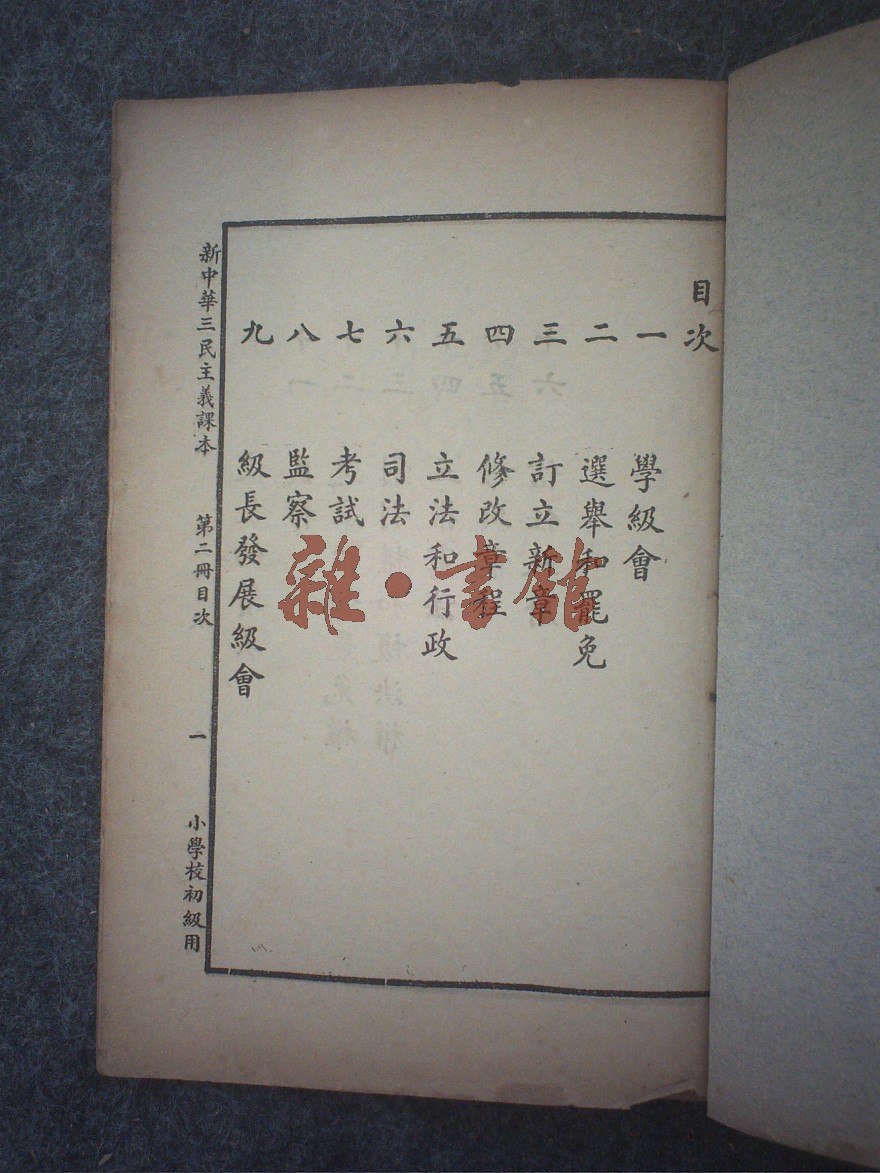 目次
一 學級會
二 選舉和罷免
三 訂立新章
四 修改章程
五 立法和行政
六 司法
七 考試
八 監察
九 級長發展級會
新中華三民主義課本 第二冊目次 一 小學校初級用
雜·書館